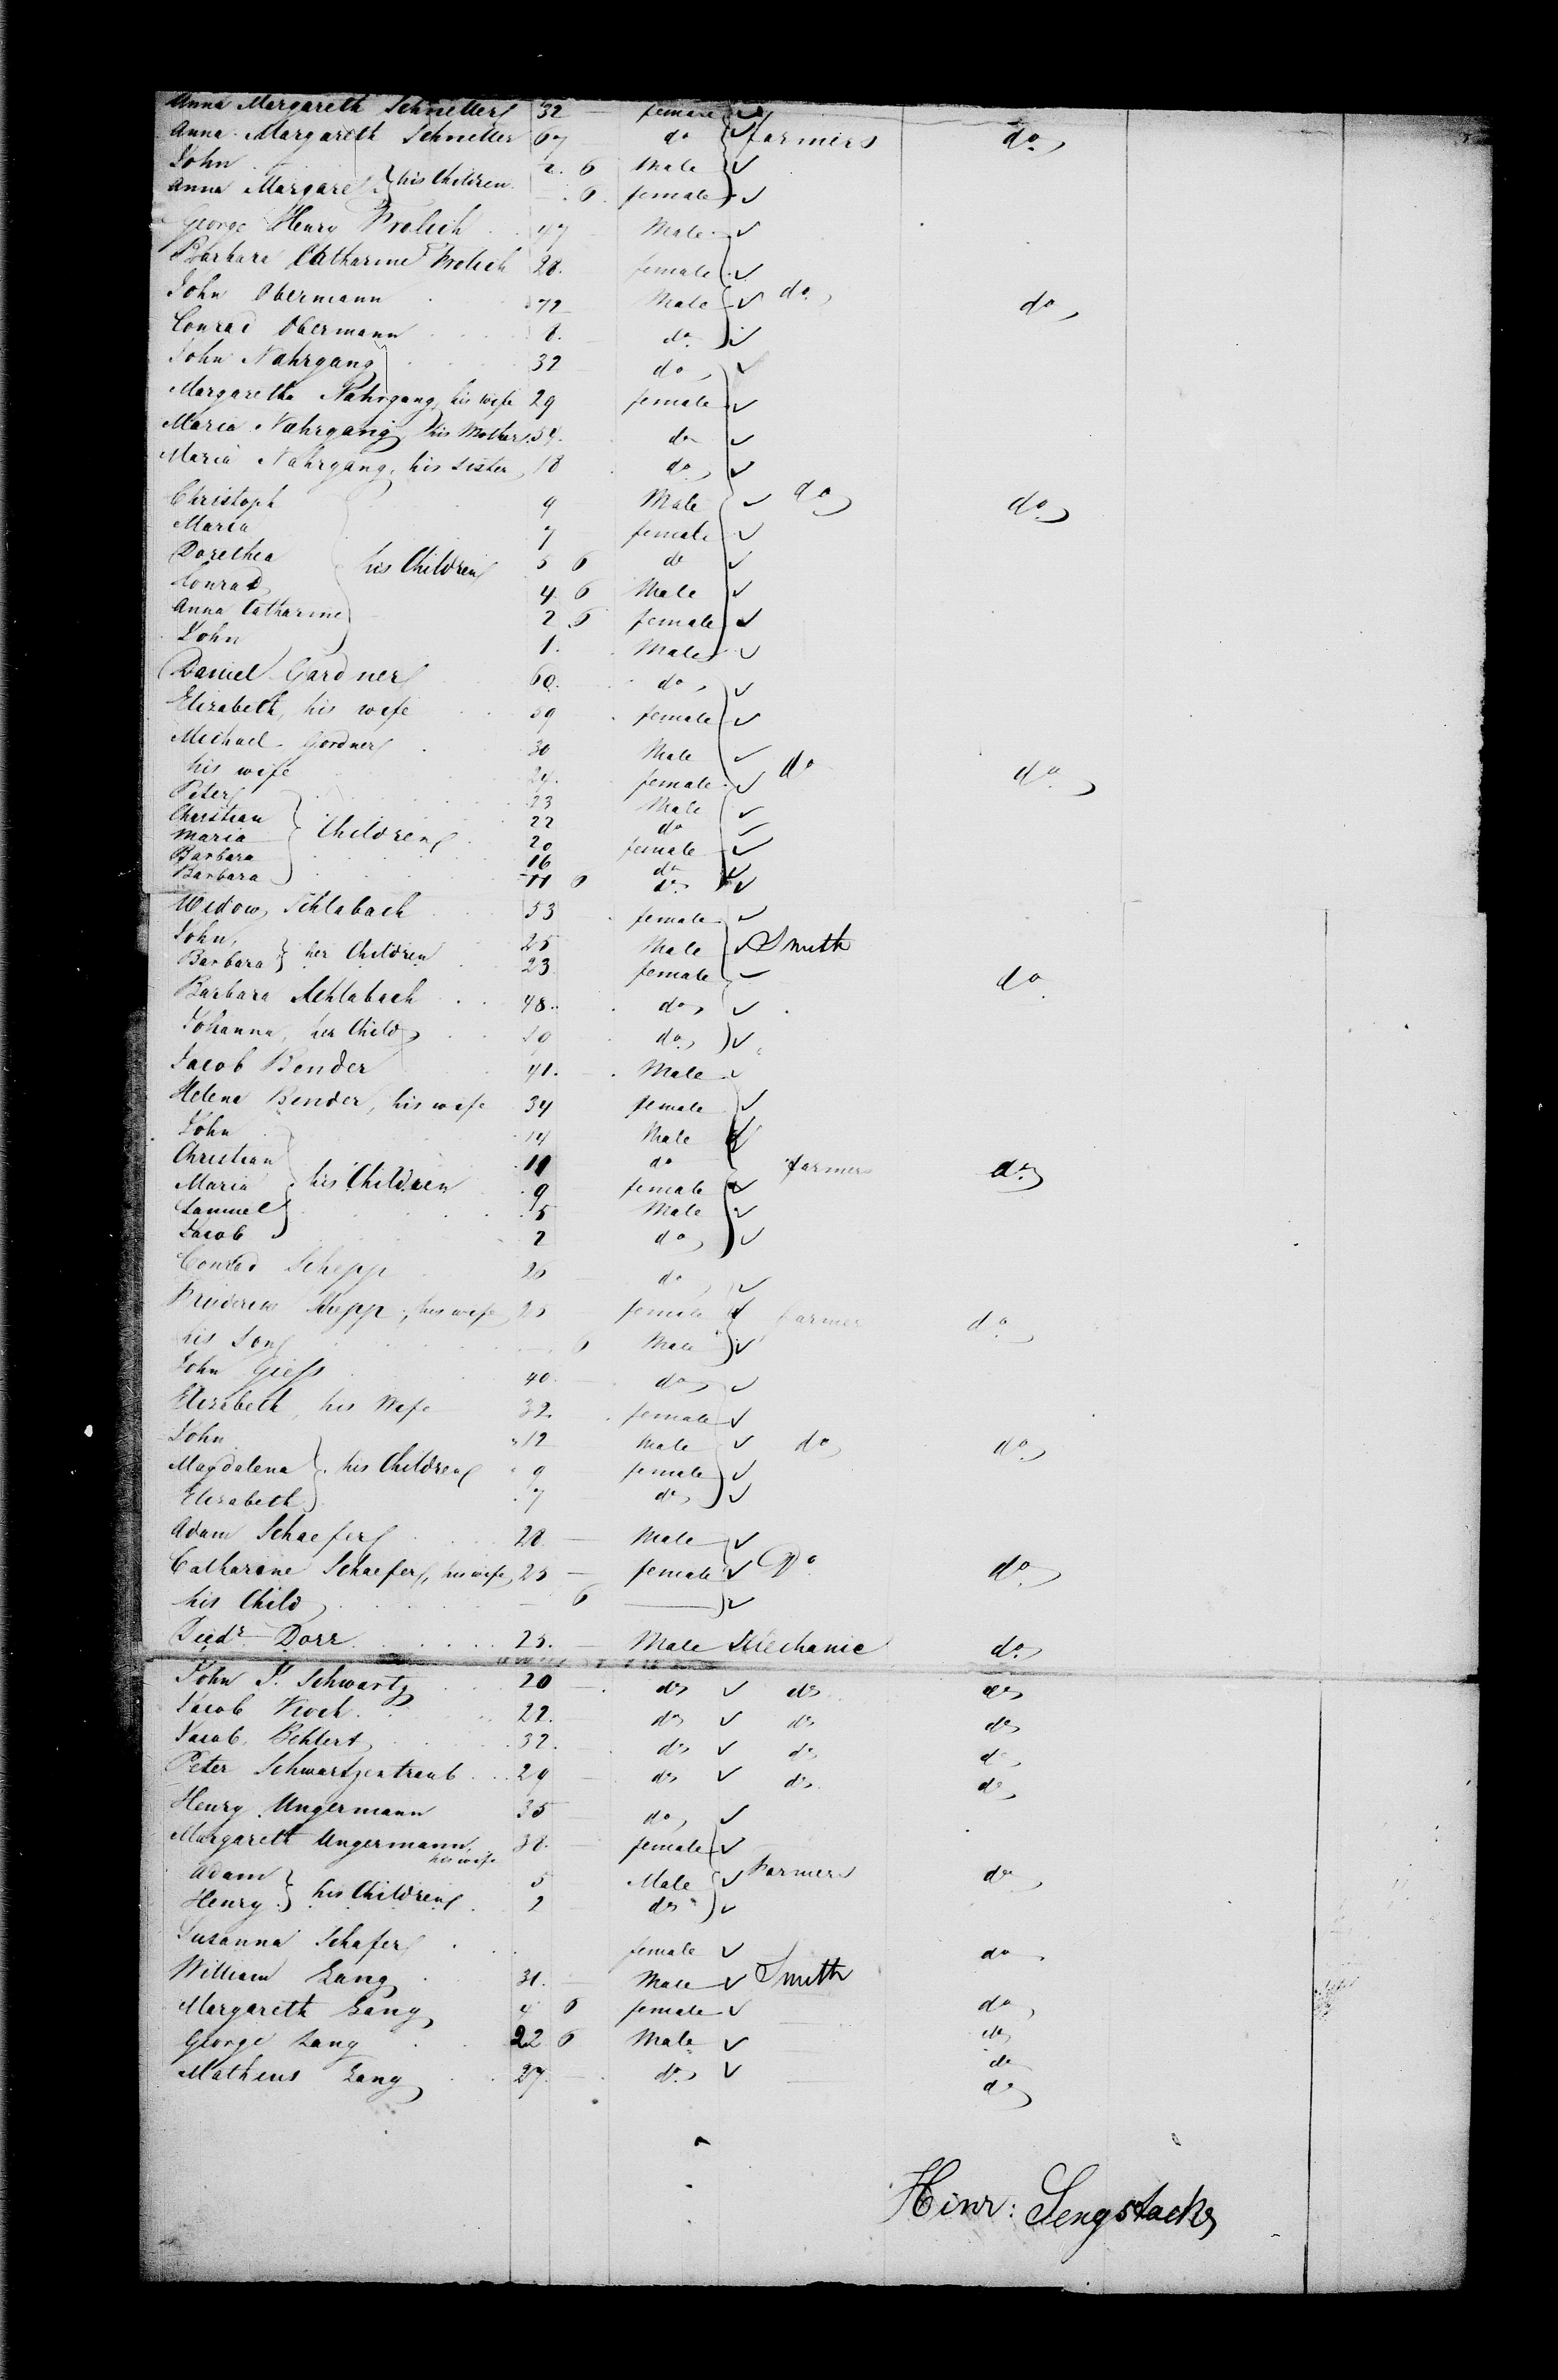 Anna Margareth Schnetter 32 female
Anna Margareth Schnetter 67 do farmers do
John 2. 6 Male
Anna Margaret } his Children . 6 female
George Henry Frolich 47 Male
Barbara Catharine Frolich 28. female
John Obermann 72 Male do do
Conrad Obermann 8. do
John Nahrgang 32 do
Margaretha Nahrgang, his wife 29 female
Maria Nahrgang, his Mother 54. do
Maria Nahrgang, his sister 18 do
Christoph 9 Male do do
Maria 7 female
Dorethea his Children 5 6 do
Conrad 4. 6 Male
Anna Catharine 2 6 female
John 1. Male
Daniel Gardner 60. do
Elizabeth, his wife 59 female
Michael Gordner 30 Male
his wife 24. female do do
Peter 23 Male
Christian 22 do
Maria } Children 20 female
Barbara 16 do
Barbara 11 6 do
Widow Schlabach 53 female
John, 25 Male Smith
Barbara } her Children 23 female do
Barbara Schlabach 48. do
Johanna, her Child 10 do
Jacob Bender 41. Male
Helena Bender, his wife 34 female
John 14 Male
Christian 11 do farmer do
Maria } his Children 9 female
Samuel 5 Male
Jacob 2 do
Conrad Schepp 26 do
Schepp, his wife 25 female farmer do
his Son 6 Male
John Giess 40. do
Elizabeth, his Wife 32. female
John 12 Male do do
Magdalena } his Children 9 female
Elizabeth 7 do
Adam Schaefer 28. Male
Catharine Schaefer, his wife 25 female Do do
his Child 6
Friedr Dorr 25. Male Mechanic do
John P. Schwartz 20 do do do
Jacob Koch 22. do do do
Jacob Behlert 32. do do do
Peter Schwartzentraub 29 do do do
Henry Ungermann 35 do
Margareth Ungermann, his wife 38. female
Adam 5 Male Farmer do
Henry } his Children 2 do
Susanna Schafer female do
William Lang 31. Male Smith
Margareth Lang 4 6 female do
George Lang 22 6 Male do
Matheus Lang 27. do do
do
Hinr: Sengstacke